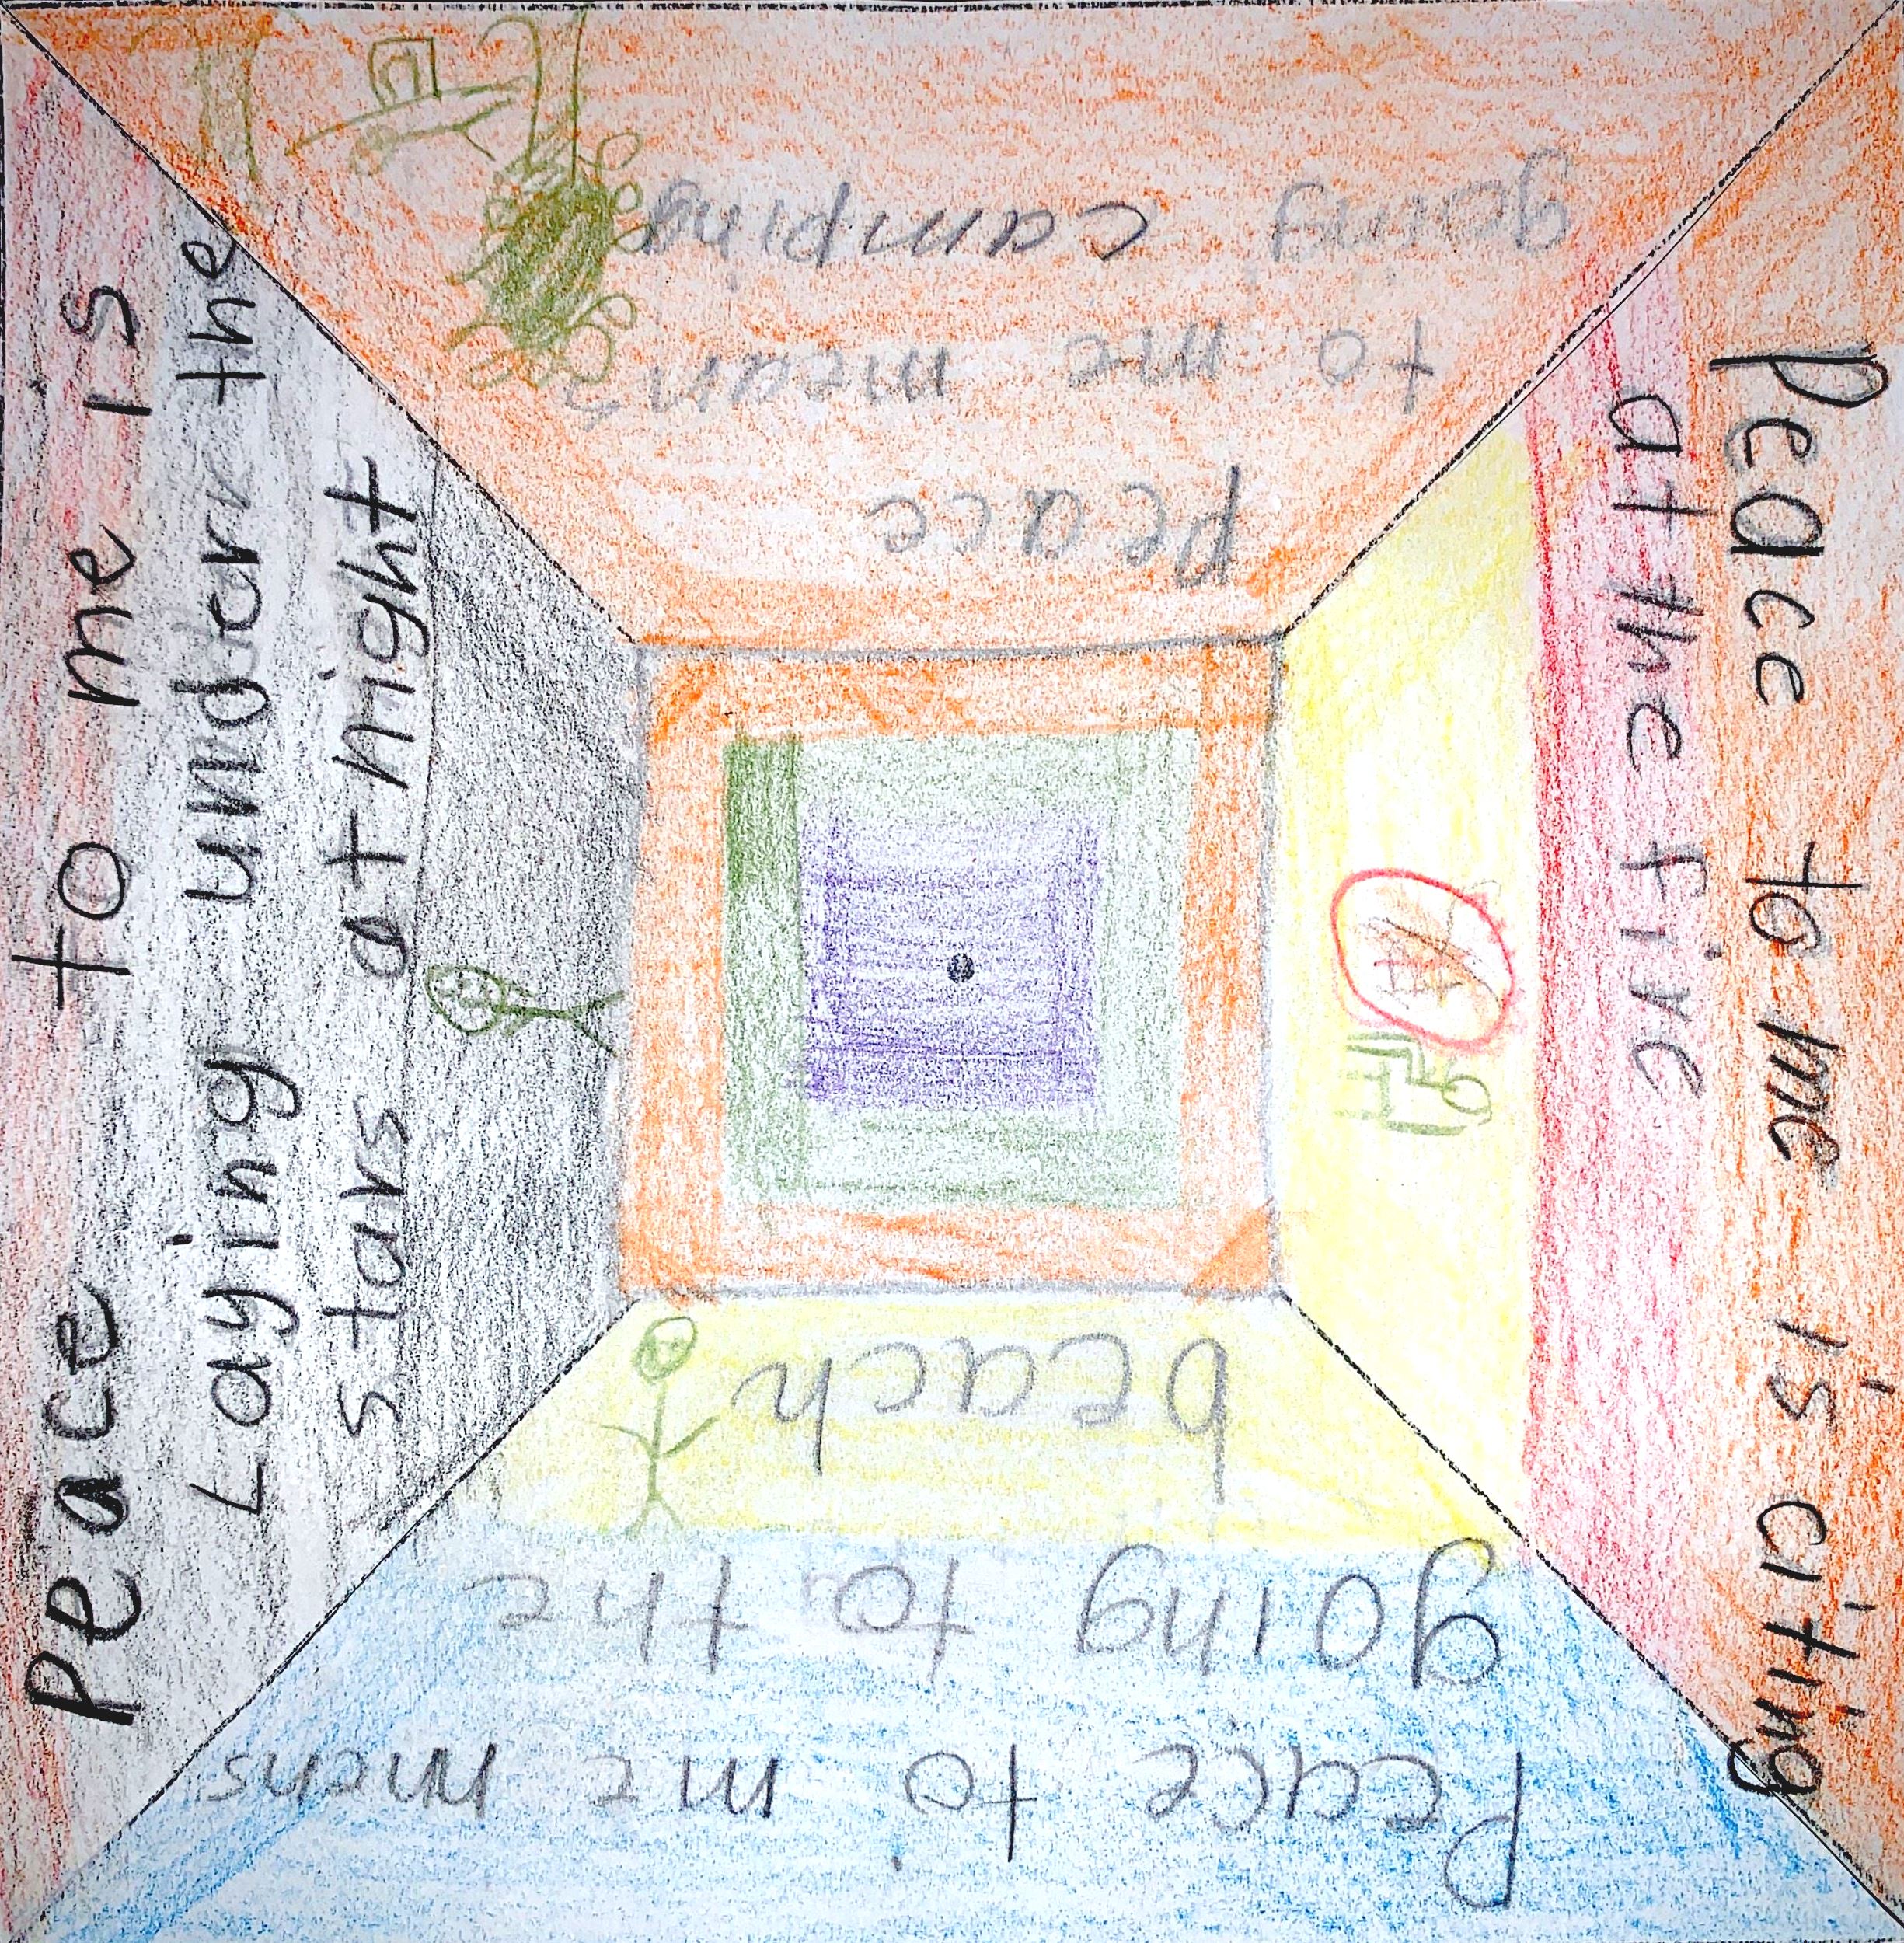 Peace
to me means
going camping
Peace to me is
Laying under the
stars at night
Peace to me is citing
at the fire
Peace to me mens
going to the
beach